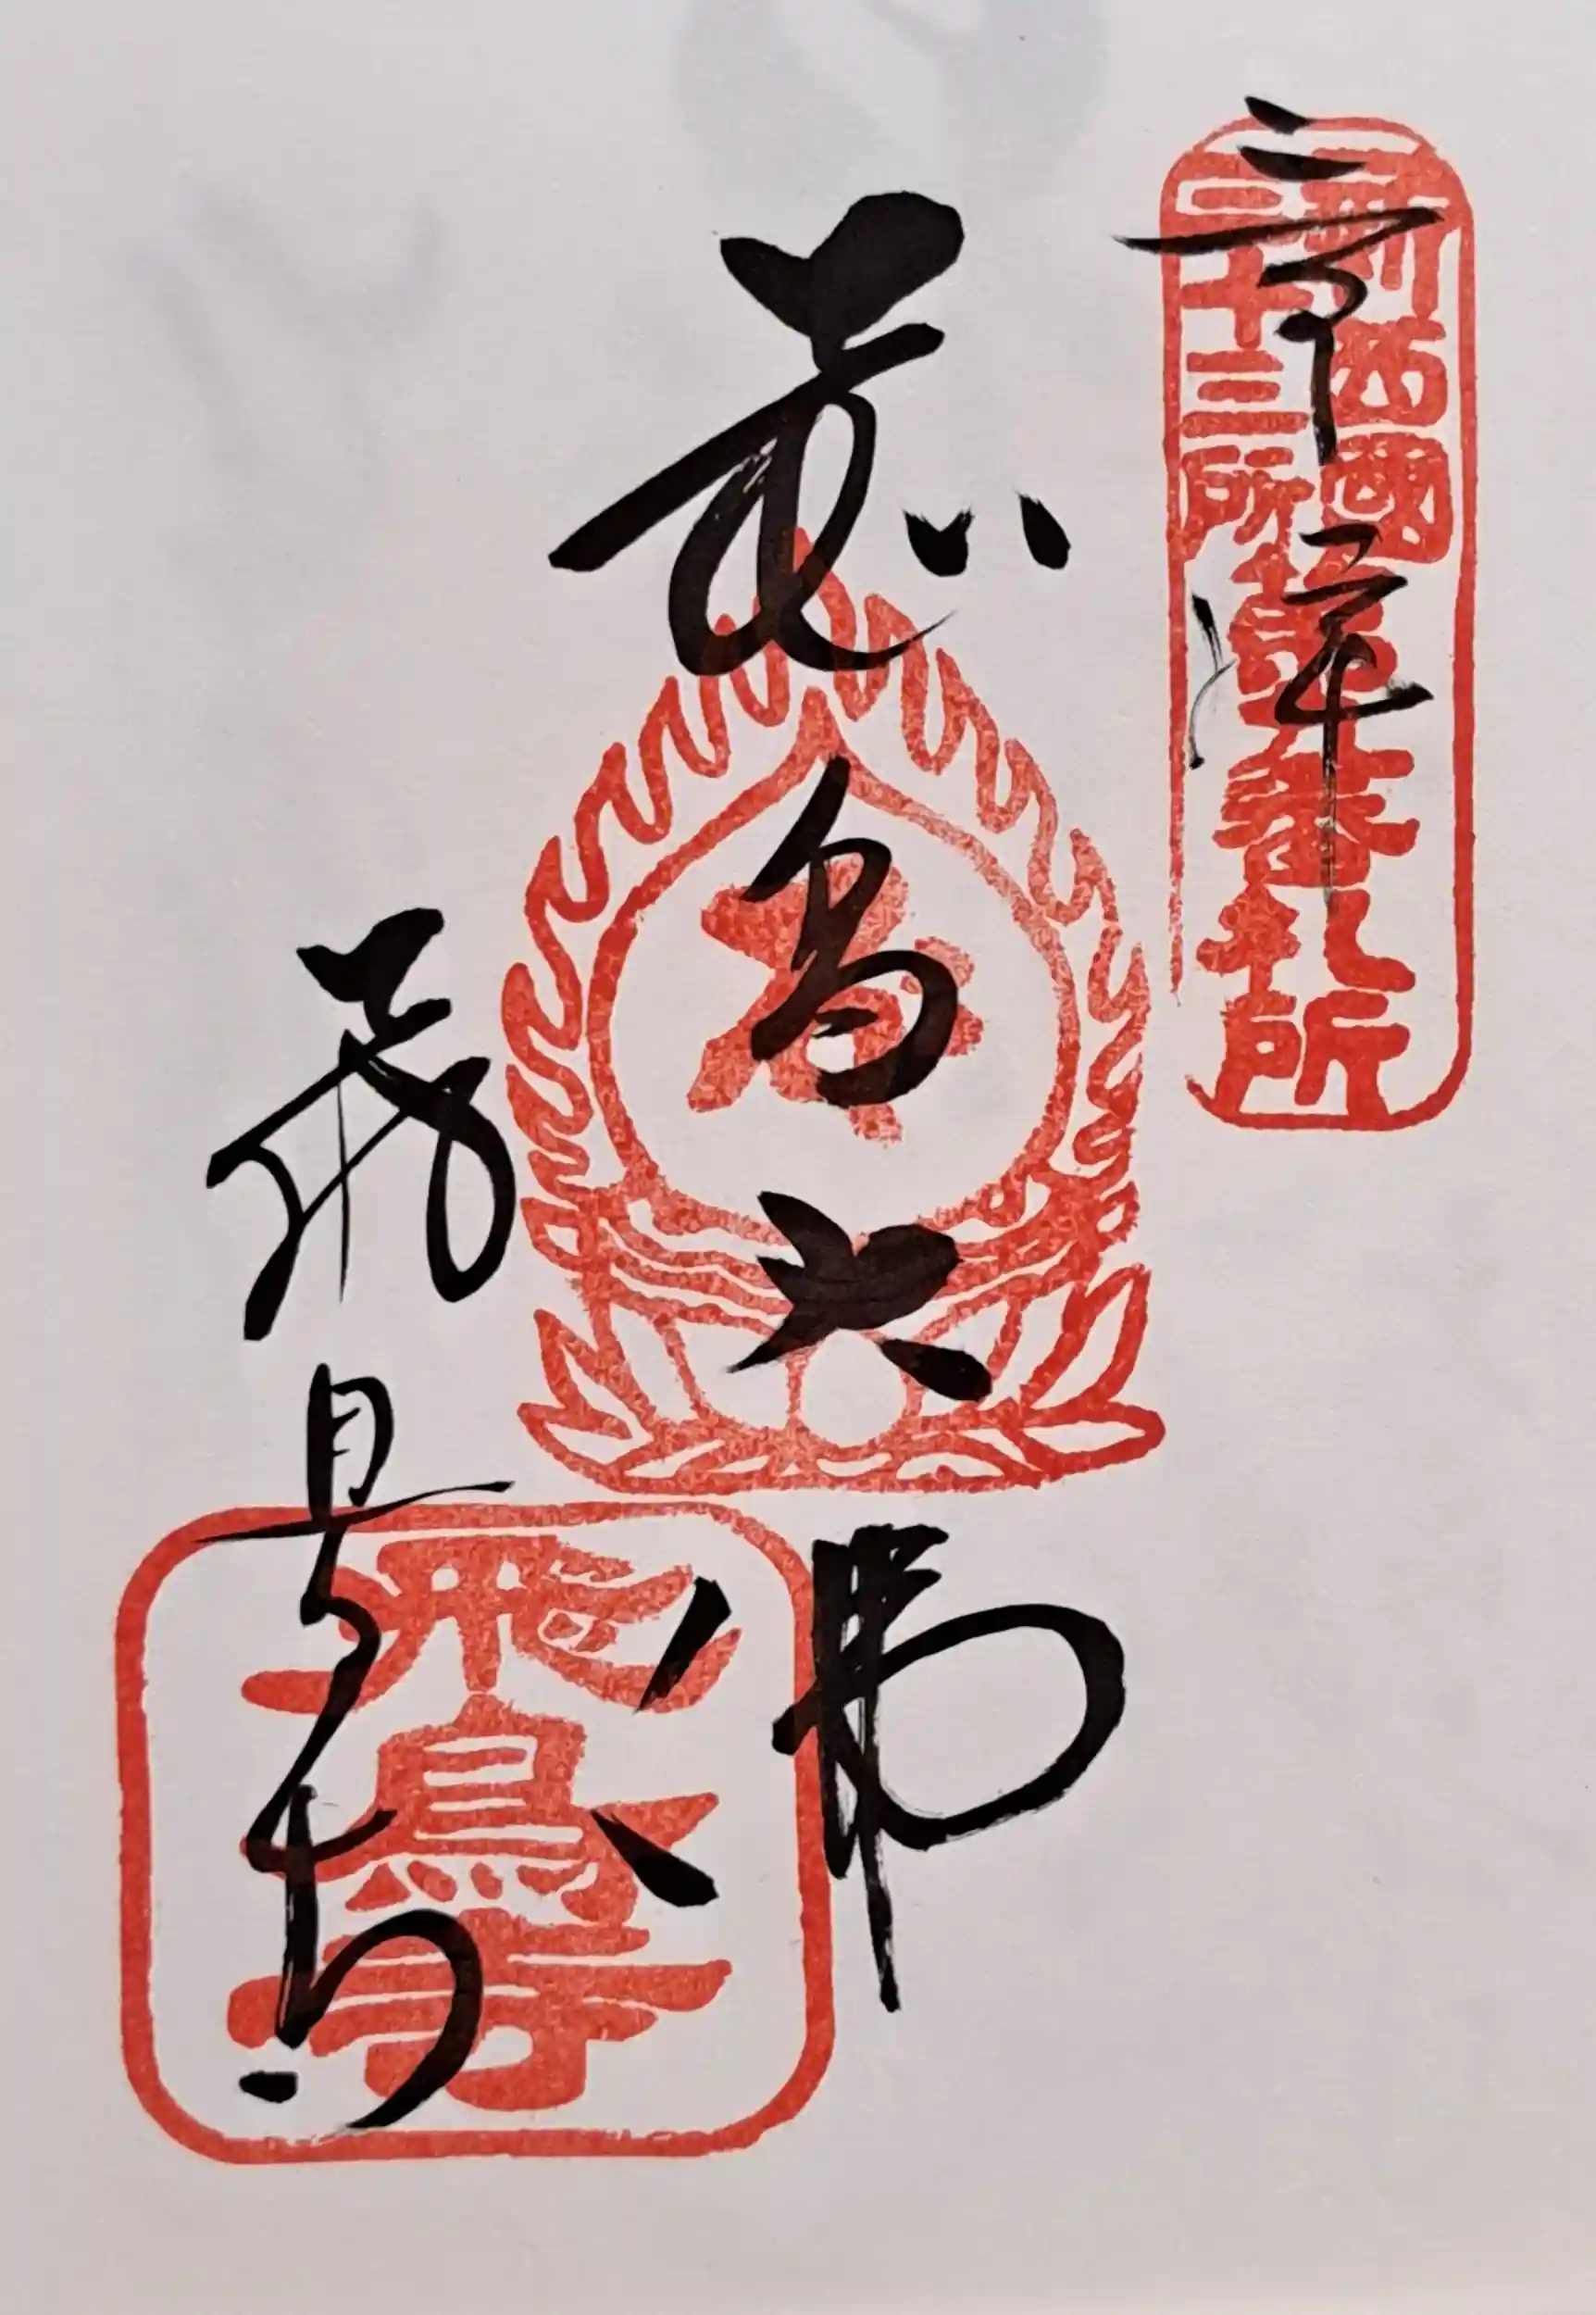 奉拝
新西國
三十三所
番札所
飛鳥大佛
飛鳥寺
飛鳥寺